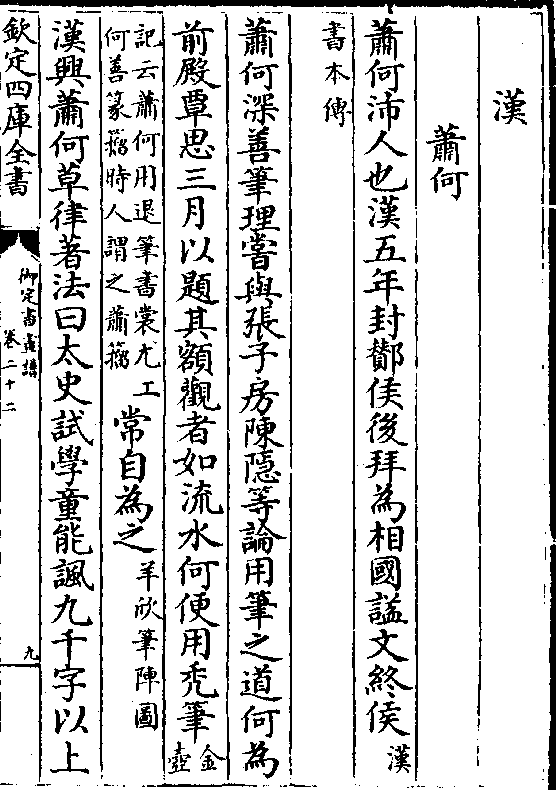 漢
蕭何
蕭何沛人也漢五年封酇侯後拜為相國諡文終侯漢
書本傳
蕭何深善筆理嘗與張子房陳隱等論用筆之道何為
前殿覃思三月以題其額觀者如流水何便用禿筆金
壺
記云蕭何用退筆書裳尤工
何善篆籀時人謂之蕭籀
常自為之羊欣筆陣圖
漢興蕭何草律著法曰太史試學童能諷九千字以上
欽定四庫全書
御定書畫譜
卷二十二
九